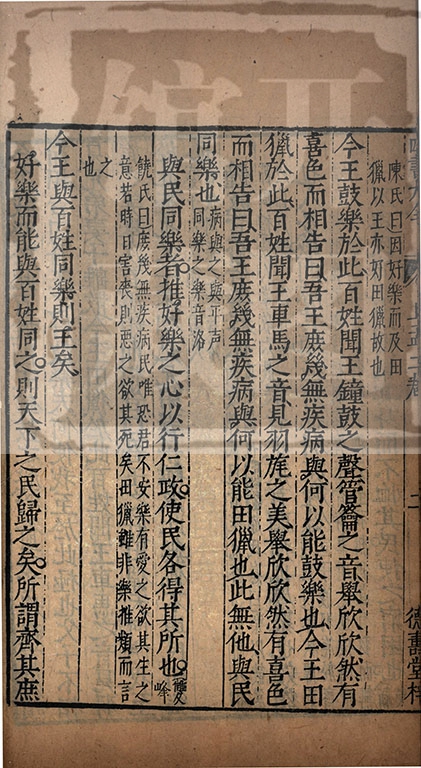 陳氏曰因好樂而及田
獵以王亦好田獵故也
今王鼓樂於此百姓聞王鐘鼓之聲管籥之音舉欣欣然有
喜色而相告曰吾王庶幾無疾病與何以能鼓樂也今王田
獵於此百姓聞王車馬之音見羽旄之美舉欣欣然有喜色
而相告曰吾王庶幾無疾病與何以能田獵也此無他與民
同樂也
病與之與平聲
同樂之樂音洛
與民同樂者推好樂之心以行仁政使民各得其所也
雙峰
饒氏曰庶幾無疾病民唯恐君不安樂有愛之欲其生之
意若時日害喪則惡之欲其死矣田獵雖非樂推類而言
之
也
今王與百姓同樂則王矣
好樂而能與百姓同之則天下之民歸之矣所謂齊其庶
二
德壽堂梓